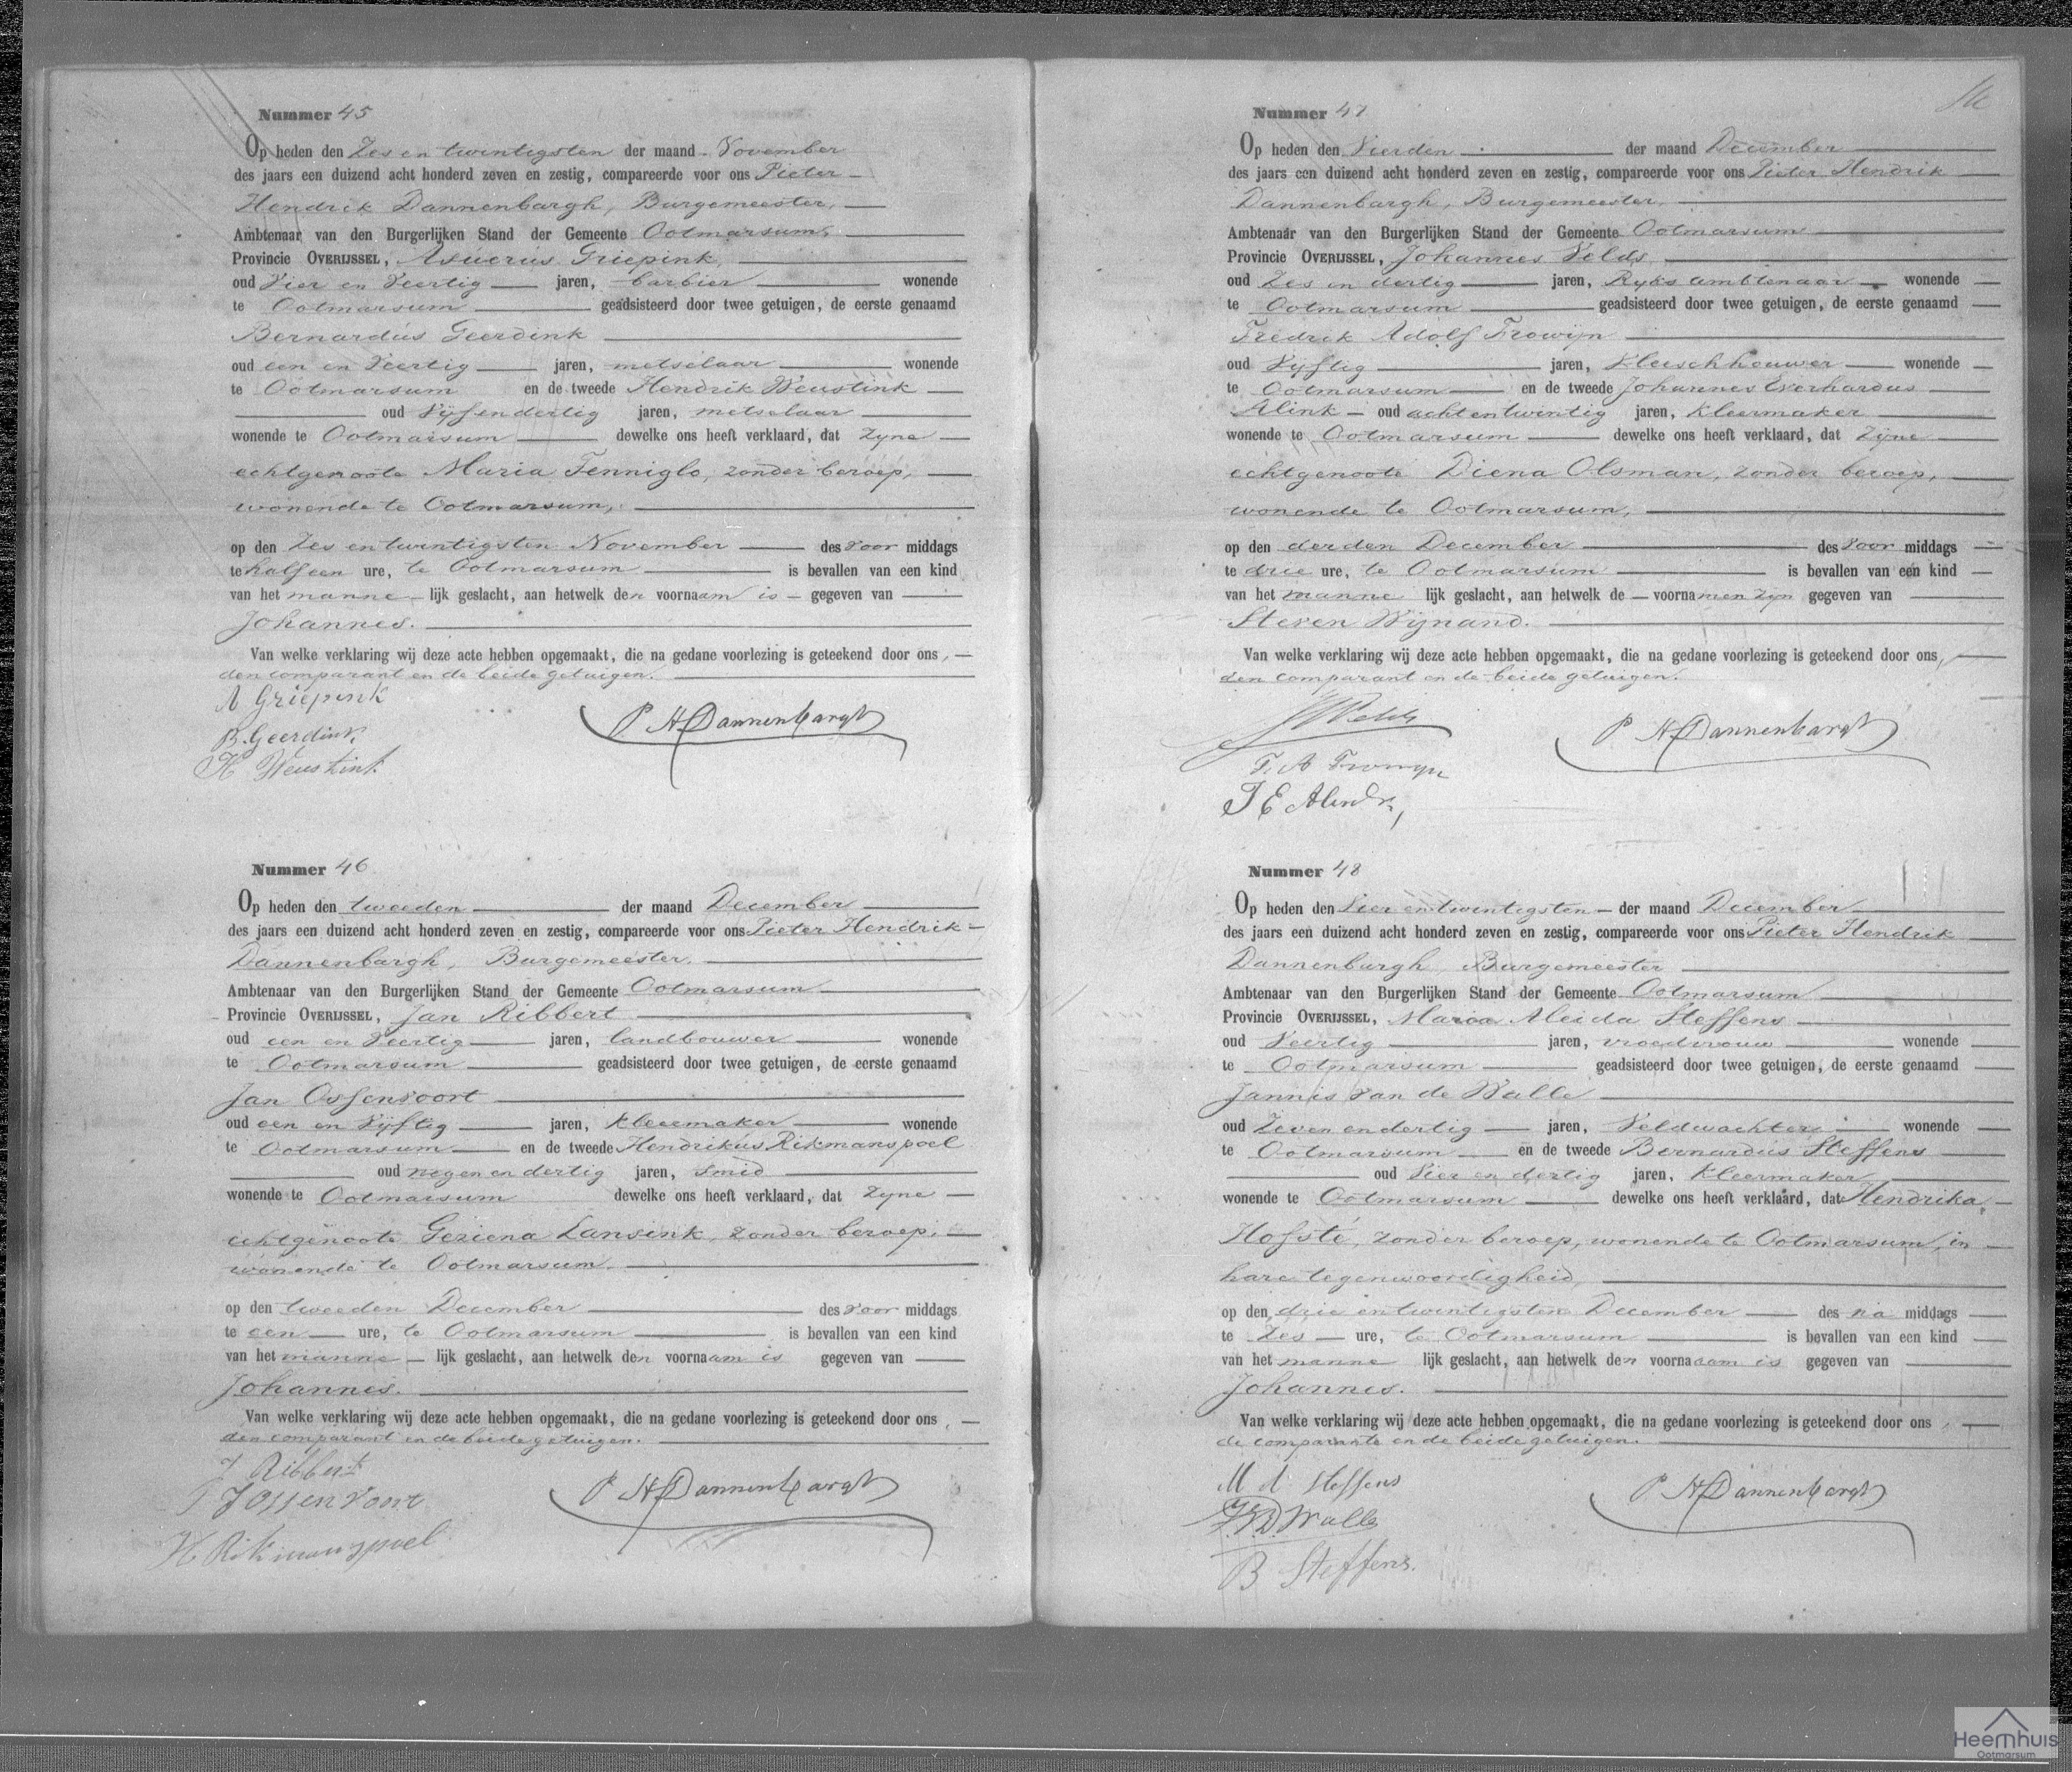 Nummer 45
Op heden den Zes en twintigsten der maand November
des jaars een duizend acht honderd zeven en zestig, compareerde voor ons Pieter
Hendrik Dannenbargh, Burgemeester,
Ambtenaar van den Burgerlijken Stand der Gemeente Ootmarsum,
Provincie OVERIJSSEL, Asuerus Griepink,
oud Vier en Veertig jaren, barbier wonende
te Ootmarsum geadsisteerd door twee getuigen, de eerste genaamd
Bernardus Geerdink
oud een en Veertig jaren, metselaar wonende
te Ootmarsum en de tweede Hendrik Weustink
oud Vijfendertig jaren, metselaar
wonende te Ootmarsum dewelke ons heeft verklaard, dat zyne
echtgenoote Maria Tenniglo, zonder beroep,
wonende te Ootmarsum,
op den Zes en twintigsten November des voor middags
te half een ure, te Ootmarsum is bevallen van een kind
van het manne lijk geslacht, aan hetwelk den voornaam is gegeven van
Johannes.
Van welke verklaring wij deze acte hebben opgemaakt, die na gedane voorlezing is geteekend door ons,
den comparant en de beide getuigen.
A Griepink
P H Dannenbargh
B. Geerdink
H Weustink
Nummer 46
Op heden den tweeden der maand December
des jaars een duizend acht honderd zeven en zestig, compareerde voor ons Pieter Hendrik
Dannenbargh, Burgemeester,
Ambtenaar van den Burgerlijken Stand der Gemeente Ootmarsum
Provincie OVERIJSSEL, Jan Ribbert
oud een en Veertig jaren, landbouwer wonende
te Ootmarsum geadsisteerd door twee getuigen, de eerste genaamd
Jan Ossenvoort
oud een en Vyftig jaren, kleermaker wonende
te Ootmarsum en de tweede Hendrikus Rikmanspoel
oud negen en dertig jaren, smid
wonende te Ootmarsum dewelke ons heeft verklaard, dat zyne
echtgenoote Geziena Lansink, zonder beroep,
wonende te Ootmarsum,
op den tweeden December des voor middags
te een ure, te Ootmarsum is bevallen van een kind
van het manne lijk geslacht, aan hetwelk den voornaam is gegeven van
Johannes.
Van welke verklaring wij deze acte hebben opgemaakt, die na gedane voorlezing is geteekend door ons,
den comparant en de beide getuigen.
J Ribbert
P H Dannenbargh
J Ossenvoort
H Rikmanspoel
Nummer 47
Op heden den Vierden der maand December
des jaars een duizend acht honderd zeven en zestig, compareerde voor ons Pieter Hendrik
Dannenbargh, Burgemeester,
Ambtenaar van den Burgerlijken Stand der Gemeente Ootmarsum
Provincie OVERIJSSEL, Johannes Velds
oud Zes en dertig jaren, Ryks ambtenaar wonende
te Ootmarsum geadsisteerd door twee getuigen, de eerste genaamd
Fredrik Adolf Frowijn
oud Vyftig jaren, Vleeschhouwer wonende
te Ootmarsum en de tweede Johannes Everhardus
Alink oud acht en twintig jaren, kleermaker
wonende te Ootmarsum dewelke ons heeft verklaard, dat zijne
echtgenoote Diena Olsman, zonder beroep,
wonende te Ootmarsum,
op den derden December des voor middags
te drie ure, te Ootmarsum is bevallen van een kind
van het manne lijk geslacht, aan hetwelk de voornamen zyn gegeven van
Steven Wijnand.
Van welke verklaring wij deze acte hebben opgemaakt, die na gedane voorlezing is geteekend door ons,
den comparant en de beide getuigen.
J Velds
P H Dannenbargh
F. A Frowyn
J E Alink
Nummer 48
Op heden den Vier en twintigsten der maand December
des jaars een duizend acht honderd zeven en zestig, compareerde voor ons Pieter Hendrik
Dannenbargh, Burgemeester
Ambtenaar van den Burgerlijken Stand der Gemeente Ootmarsum
Provincie OVERIJSSEL, Maria Aleida Steffens
oud Veertig jaren, vroedvrouw wonende
te Ootmarsum geadsisteerd door twee getuigen, de eerste genaamd
Jannis van de Walle
oud Zeven en dertig jaren, Veldwachter wonende
te Ootmarsum en de tweede Bernardus Steffens
oud Vier en dertig jaren, kleermaker
wonende te Ootmarsum dewelke ons heeft verklaard, dat Hendrika
Hofsté, zonder beroep, wonende te Ootmarsum, in
hare tegenwoordigheid,
op den drie en twintigsten December des na middags
te Zes ure, te Ootmarsum is bevallen van een kind
van het manne lijk geslacht, aan hetwelk den voornaam is gegeven van
Johannes.
Van welke verklaring wij deze acte hebben opgemaakt, die na gedane voorlezing is geteekend door ons,
de comparante en de beide getuigen.
M A Steffens
P H Dannenbargh
J. V. D. Walle
B Steffens.
Heemhuis
Ootmarsum